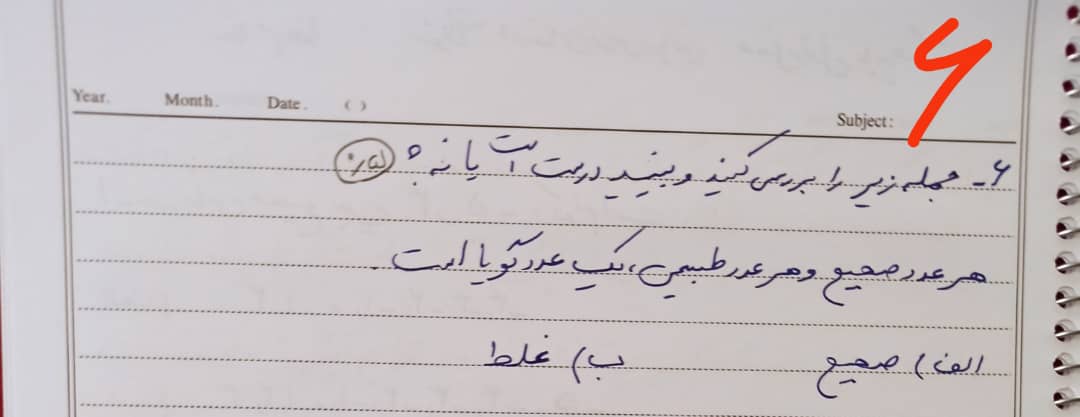 ۶
Year. Month. Date. ( )
Subject:
۶- جمله زیر را بررسی کنید و ببینید درست است یا نه؟ (۰/۵)
هر عدد صحیح و هر عدد طبیعی، یک عدد گویا است.
الف) صحیح ب) غلط